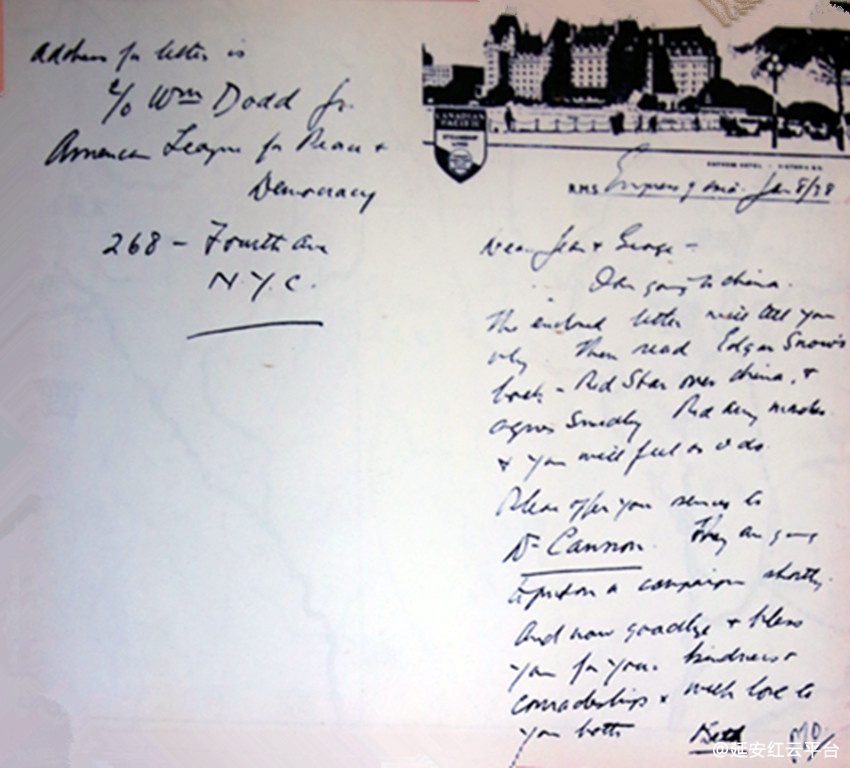 Address for letter is
c/o Wm Dodd Jr.
American League for Peace +
Democracy
268 - Fourth Ave
N.Y.C.
CANADIAN
PACIFIC
EMPRESS HOTEL - VICTORIA B.C.
R.M.S. Empress of Asia. Jan 8/38
Dear Jean & George -
I am going to China.
The enclosed letter will tell you
why. Then read Edgar Snow's
book - Red Star over China, +
Agnes Smedley Red Army marches
+ you will feel as I do.
Please offer your services to
Dr Cannon. They are going
to put on a campaign shortly.
And now goodbye + bless
you for your kindness +
comradeship + with love to
you both Beth M.D.
@延安红云平台